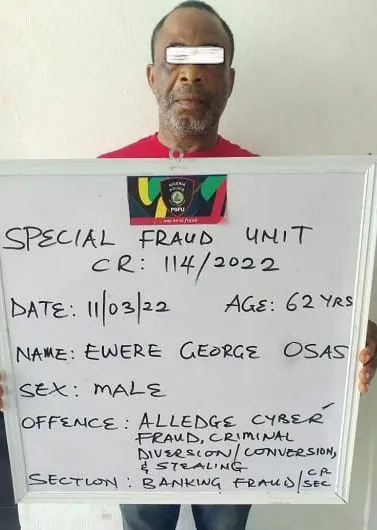 NIGERIA
POLICE
PSFU
SPECIAL FRAUD UNIT
CR: 114/2022
DATE: 11/03/22 AGE: 62 YRS
NAME: EWERE GEORGE OSAS
SEX: MALE
OFFENCE: ALLEDGE CYBER
FRAUD, CRIMINAL
DIVERSION/CONVERSION,
& STEALING
SECTION: BANKING FRAUD/CR SEC